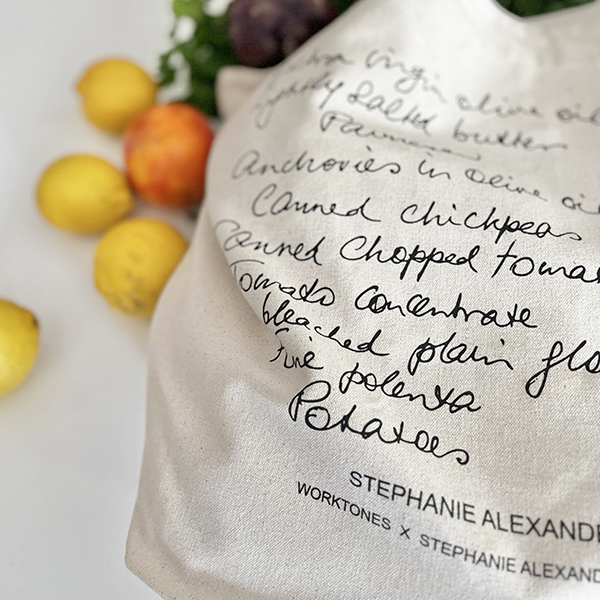 virgin olive oil
lightly salted butter
Parmesan
Anchovies in olive oil
Canned chickpeas
Canned Chopped tomat
Tomato concentrate
bleached plain flo
Fine polenta
Potatoes
STEPHANIE ALEXANDE
WORKTONES X STEPHANIE ALEXAND